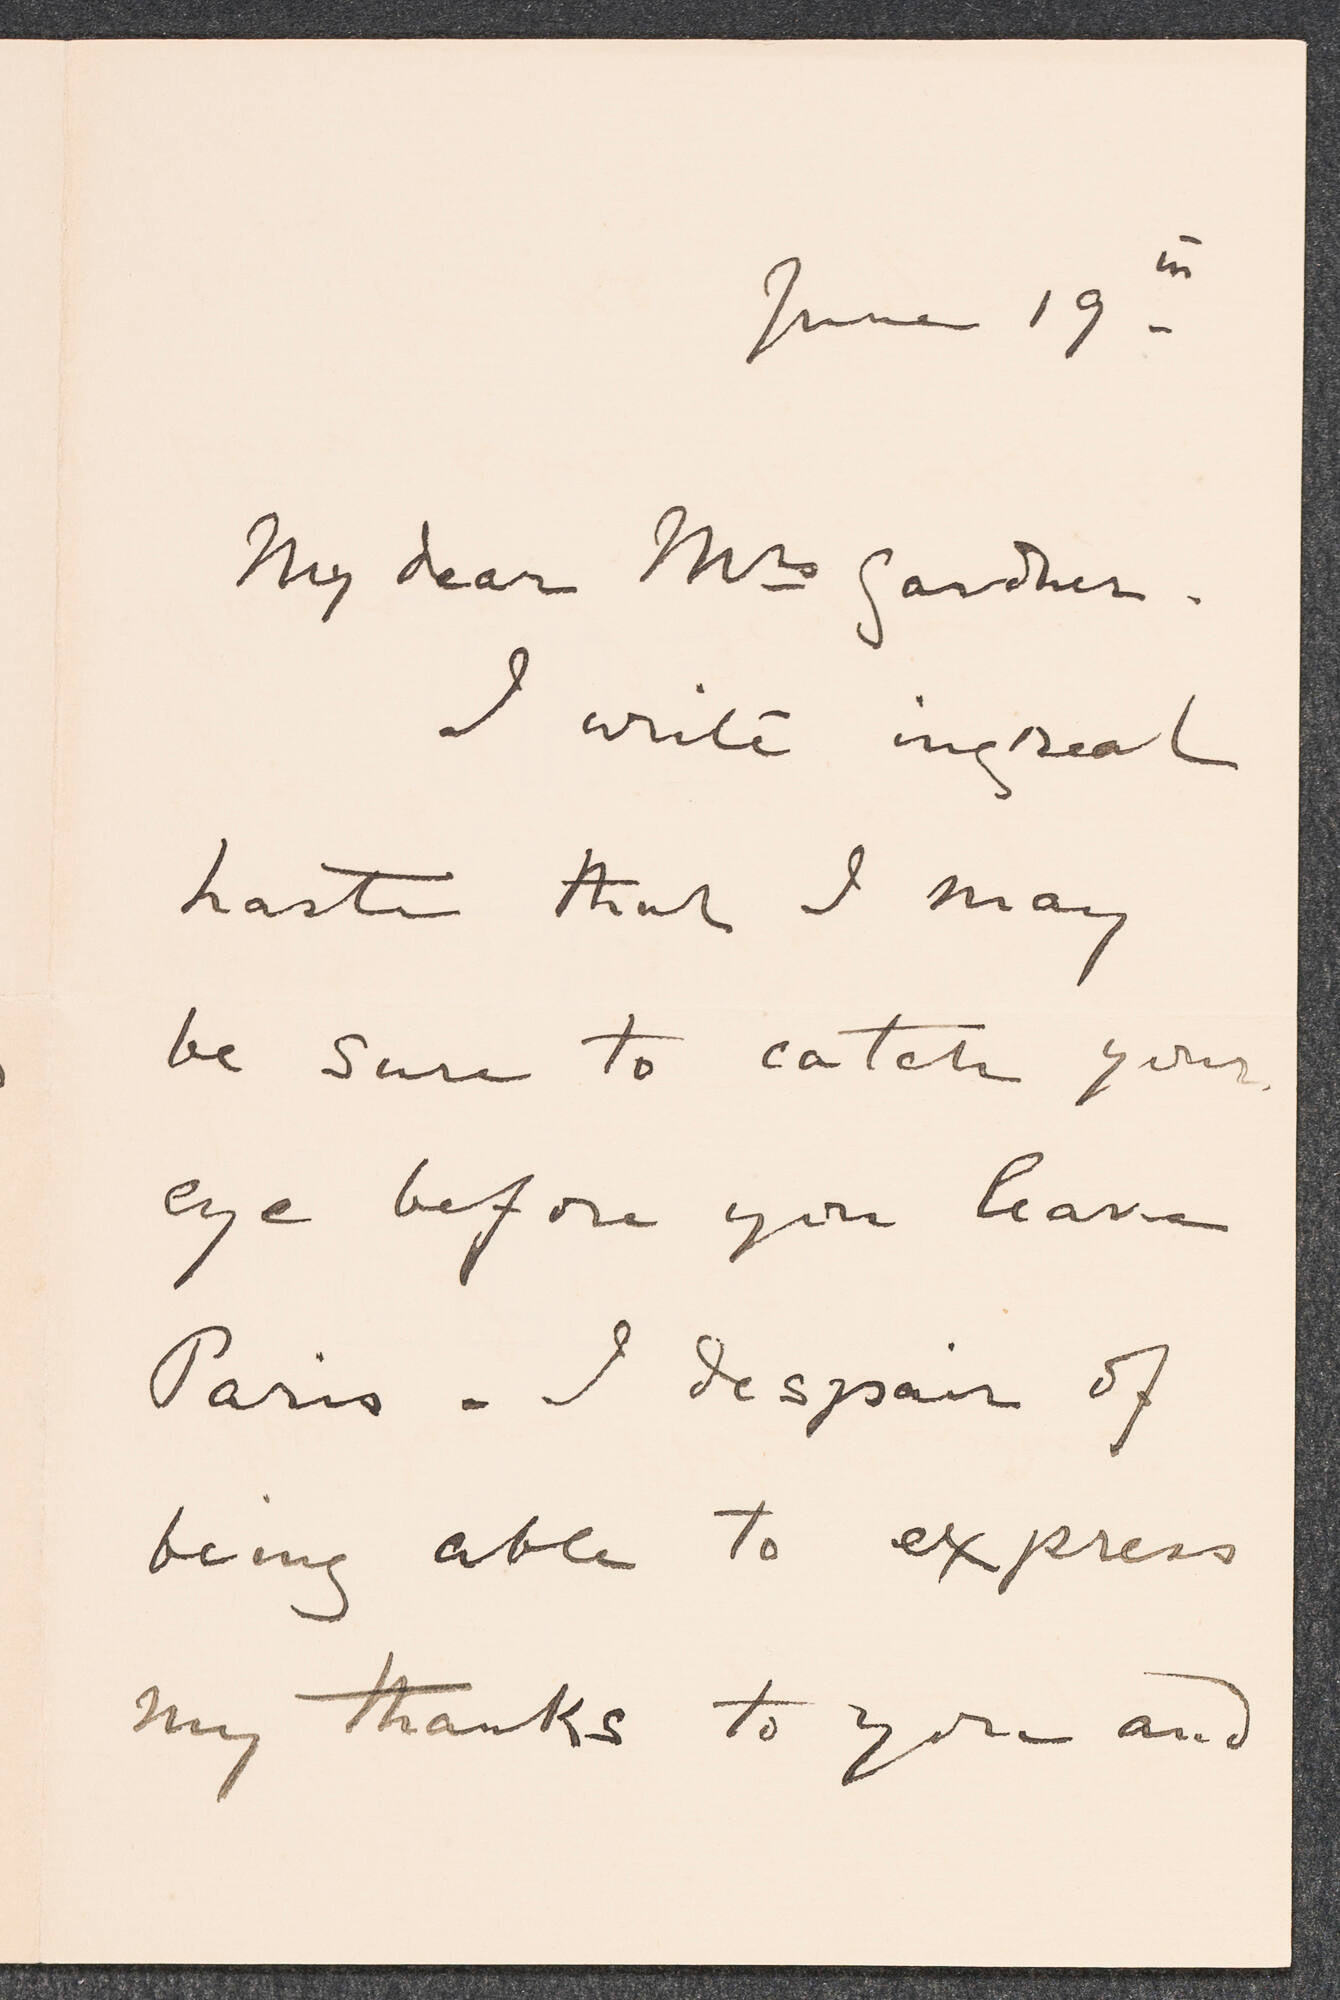 June 19th
My dear Mrs Gardner.
I write in great
haste that I may
be sure to catch your
eye before you leave
Paris - I despair of
being able to express
my thanks to you and